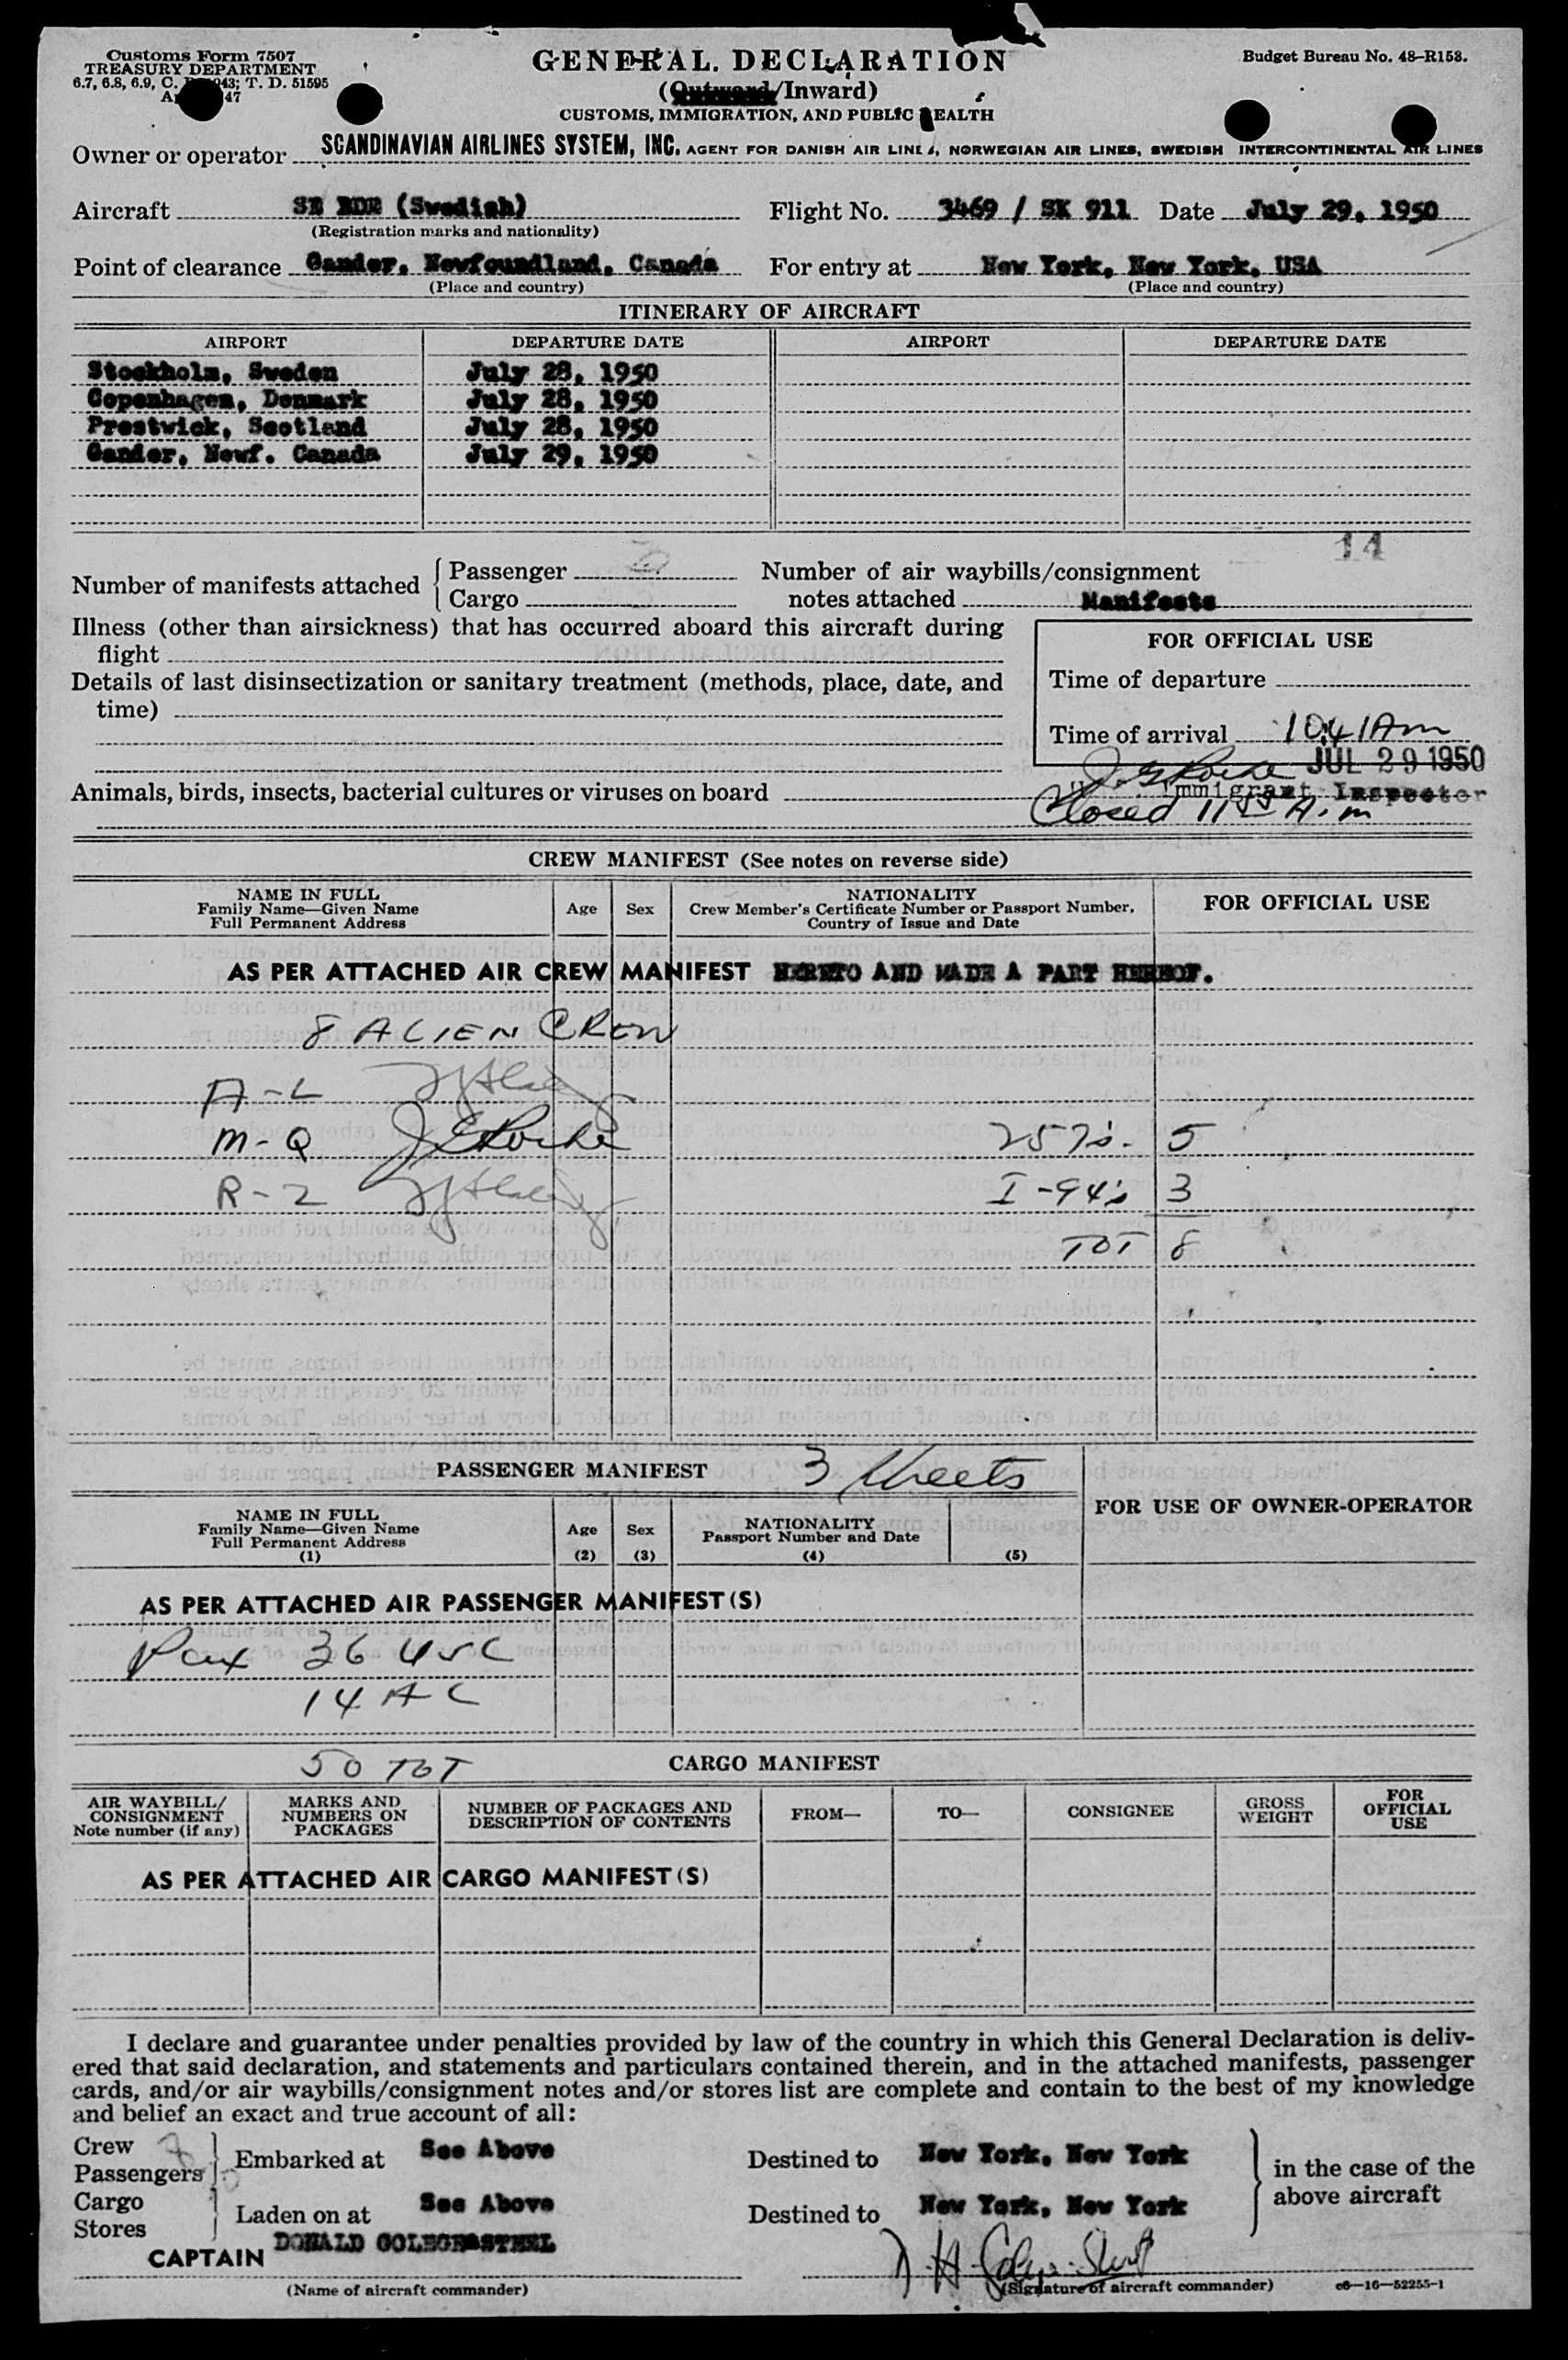 Customs Form 7507
TREASURY DEPARTMENT
6.7, 6.8, 6.9, C. 43; T. D. 51595
47
GENERAL DECLARATION
(Outward/Inward)
CUSTOMS, IMMIGRATION, AND PUBLIC HEALTH
Budget Bureau No. 48—R153.
Owner or operator SCANDINAVIAN AIRLINES SYSTEM, INC. AGENT FOR DANISH AIR LINES, NORWEGIAN AIR LINES, SWEDISH INTERCONTINENTAL AIR LINES
Aircraft SE BDR (Swedish) Flight No. 3469 / SK 911 Date July 29, 1950
(Registration marks and nationality)
Point of clearance Gander, Newfoundland, Canada For entry at New York, New York, USA
(Place and country) (Place and country)
ITINERARY OF AIRCRAFT
AIRPORT DEPARTURE DATE AIRPORT DEPARTURE DATE
Stockholm, Sweden July 28, 1950
Copenhagen, Denmark July 28, 1950
Prestwick, Scotland July 28, 1950
Gander, Newf. Canada July 29, 1950
14
Number of manifests attached { Passenger Number of air waybills/consignment
Cargo notes attached Manifests
Illness (other than airsickness) that has occurred aboard this aircraft during
flight
Details of last disinsectization or sanitary treatment (methods, place, date, and
time)
FOR OFFICIAL USE
Time of departure
Time of arrival 10:41 Am
JUL 29 1950
Immigrant Inspector
Animals, birds, insects, bacterial cultures or viruses on board
Closed 11 55 A.m
CREW MANIFEST (See notes on reverse side)
NAME IN FULL
Family Name—Given Name
Full Permanent Address
Age
Sex
NATIONALITY
Crew Member's Certificate Number or Passport Number,
Country of Issue and Date
FOR OFFICIAL USE
AS PER ATTACHED AIR CREW MANIFEST HERETO AND MADE A PART HEREOF.
8 ALIEN CREW
A-L
M-Q 257's - 5
R-Z I-94's 3
TOT 8
PASSENGER MANIFEST 3 sheets
FOR USE OF OWNER-OPERATOR
NAME IN FULL
Family Name—Given Name
Full Permanent Address
(1)
Age
(2)
Sex
(3)
NATIONALITY
Passport Number and Date
(4) (5)
AS PER ATTACHED AIR PASSENGER MANIFEST(S)
Pax 36 USC
14 AC
50 TOT
CARGO MANIFEST
AIR WAYBILL/
CONSIGNMENT
Note number (if any)
MARKS AND
NUMBERS ON
PACKAGES
NUMBER OF PACKAGES AND
DESCRIPTION OF CONTENTS
FROM—
TO—
CONSIGNEE
GROSS
WEIGHT
FOR
OFFICIAL
USE
AS PER ATTACHED AIR CARGO MANIFEST(S)
I declare and guarantee under penalties provided by law of the country in which this General Declaration is deliv-
ered that said declaration, and statements and particulars contained therein, and in the attached manifests, passenger
cards, and/or air waybills/consignment notes and/or stores list are complete and contain to the best of my knowledge
and belief an exact and true account of all:
Crew
Passengers } Embarked at See Above Destined to New York, New York
Cargo
Stores } Laden on at See Above Destined to New York, New York
in the case of the
above aircraft
CAPTAIN DONALD COLEGE-STEEL
(Name of aircraft commander) (Signature of aircraft commander) c6—16—52255-1